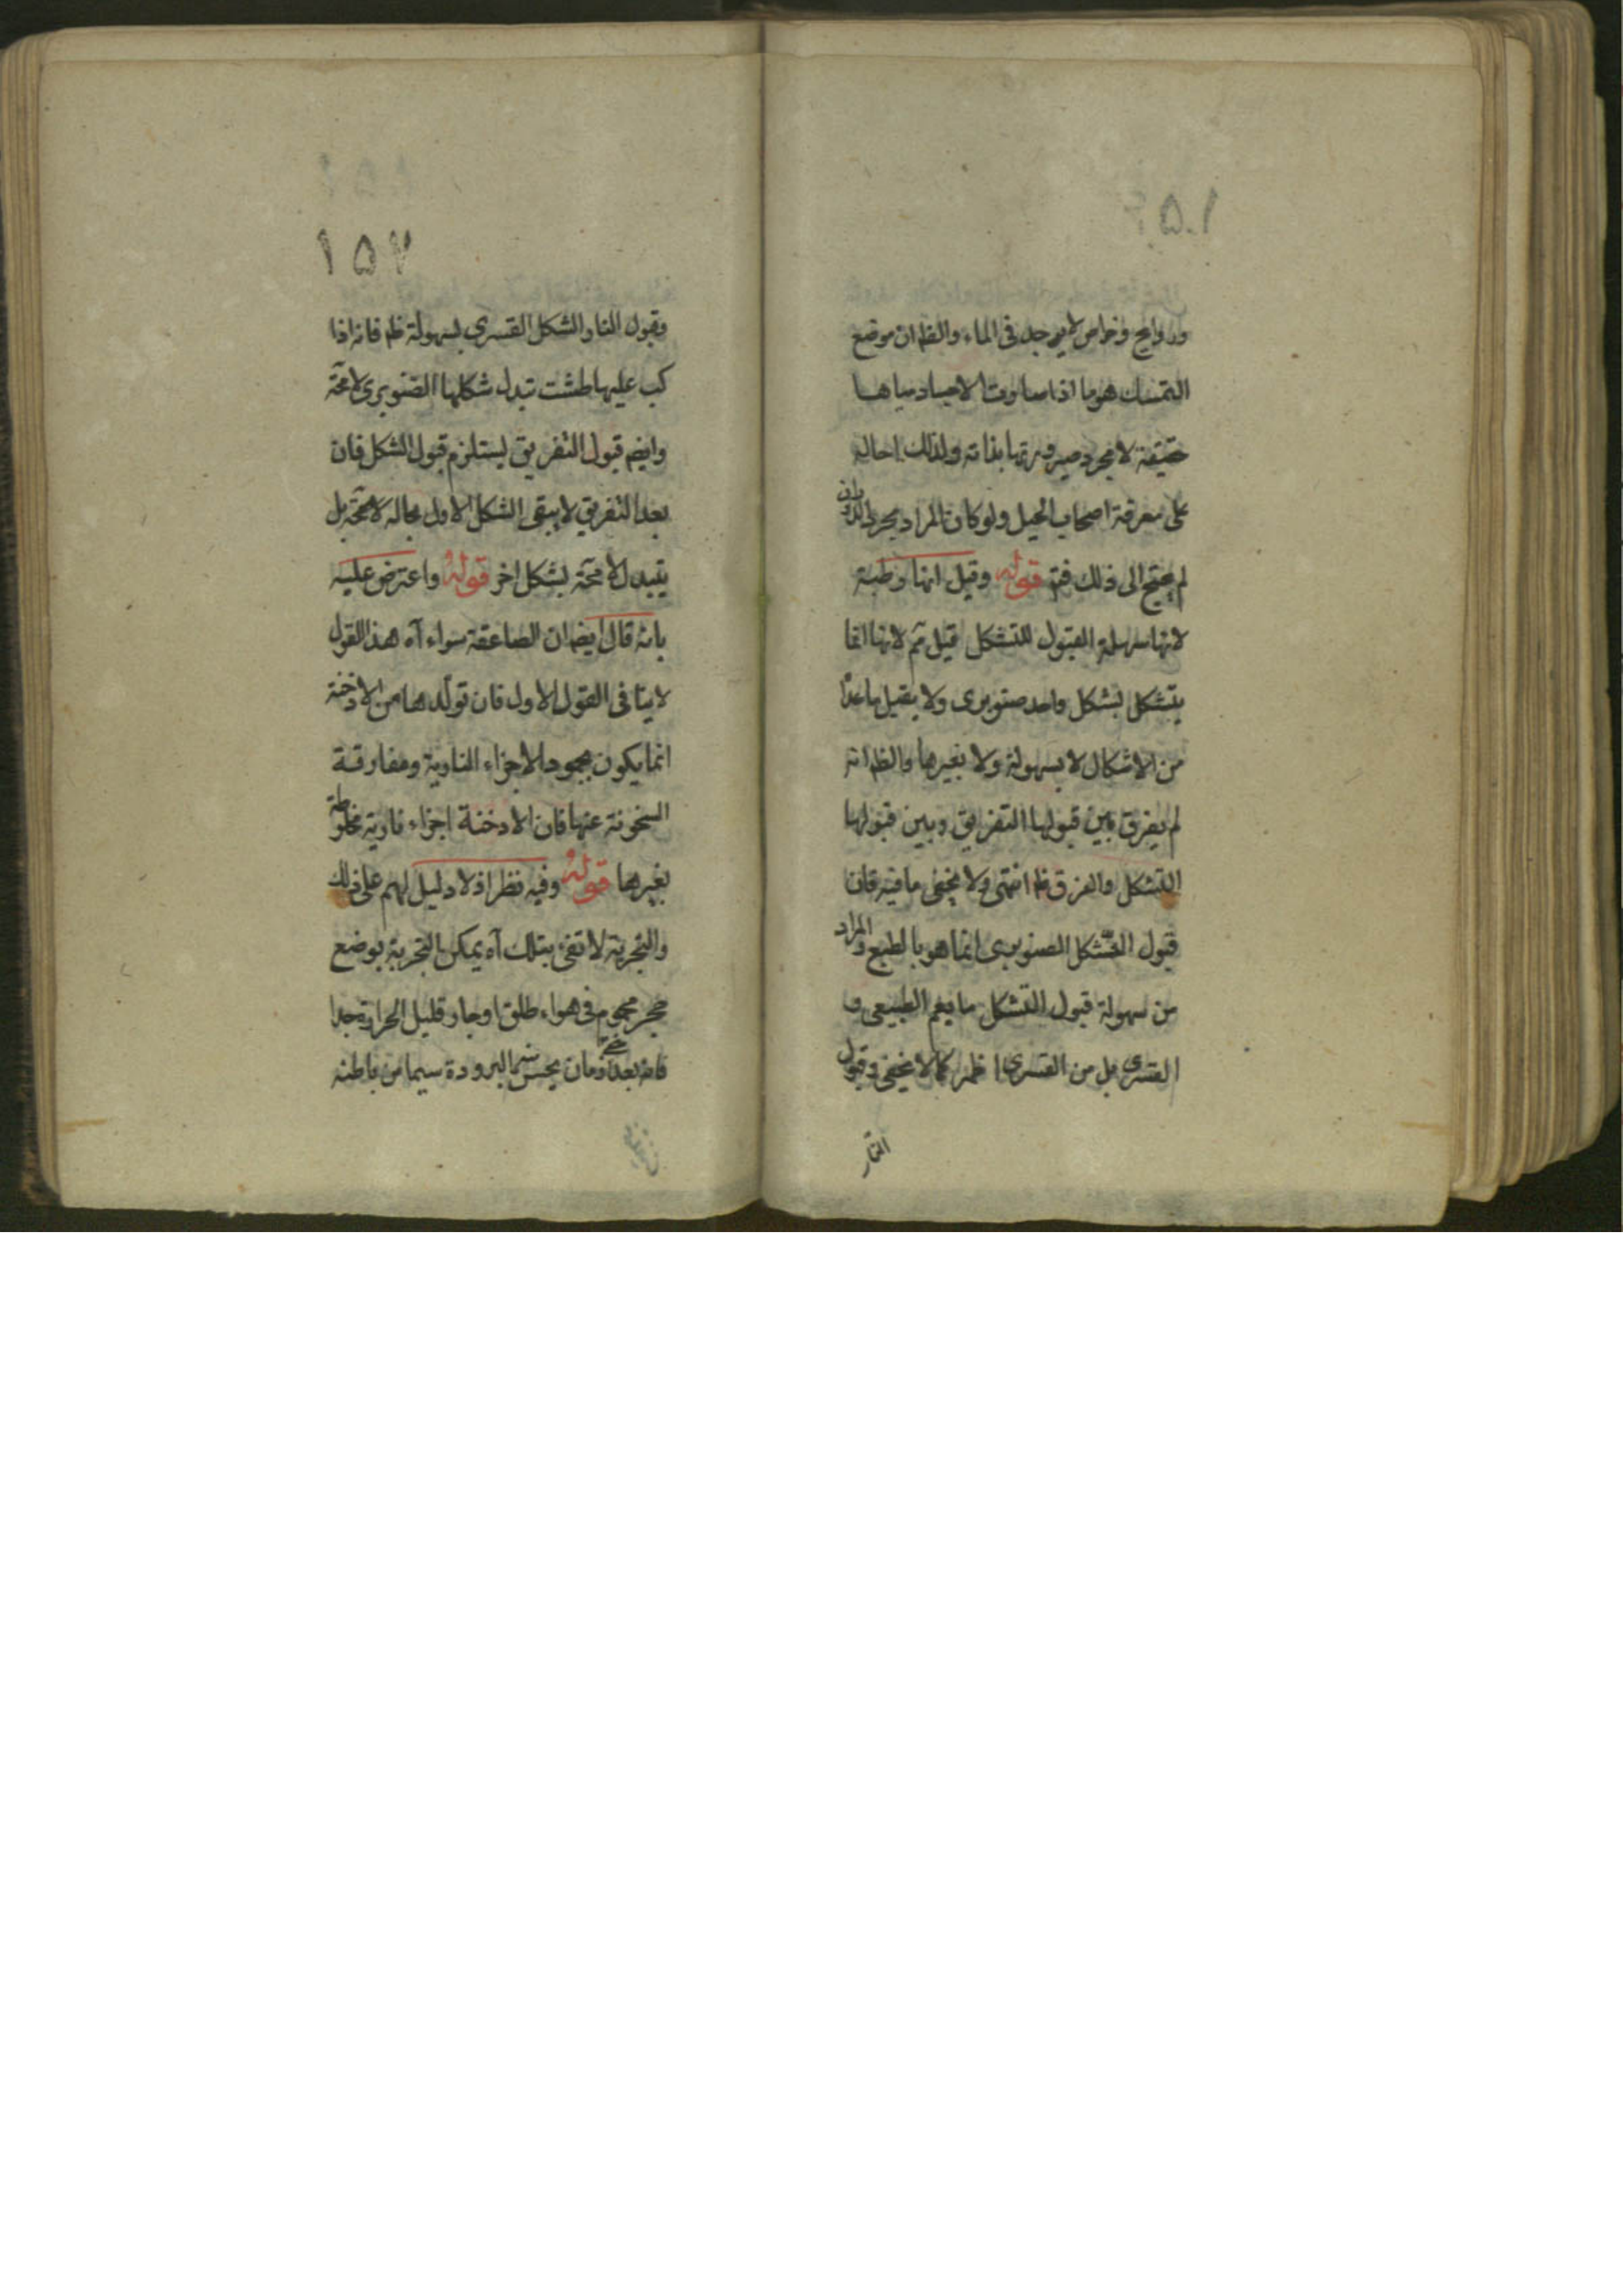 وروايح وخواص لا يوجد فى الماء والظ ان موضع
التمسك هو ما اذا صارت الاجساد مياها
حقيقة لا مجرد صيرورتها بذاته ولذلك احاله
على معرفة اصحاب الحيل ولو كان المراد مجرد الذوبان
لم يحتج الى ذلك فتم قوله وقيل انها رطبة
لانها سهلة القبول للتشكل قيل ثم لانها انما
يتشكل بشكل واحد صنوبرى ولا يقبل ما عدا
من الاشكال لا بسهولة ولا بغيرها والظ انه
لم يفرق بين قبولها التفريق وبين قبولها
التشكل والفرق ظ انتهى ولا يخفى ما فيه فان
قبول التشكل الصنوبرى انما هو بالطبع والمراد
من سهولة قبول التشكل ما يعم الطبيعى و
القسرى بل من القسرى اظهر كما لا يخفى وقبول
النار
١٥٧
وقبول النار الشكل القسرى بسهولة ظ فانه اذا
كب عليها طشت تبدل شكلها الصنوبرى لا محة
وايضا قبول التفريق يستلزم قبول الشكل فان
بعد التفريق لا يبقى الشكل الاول بحاله لا محة بل
يتبدل لا محة بشكل اخر قوله واعترض عليه
بانه قال ايضا ان الصاعقة سواء آه هذا القول
لا ينافى القول الاول فان تولدها من الادخنة
انما يكون بجمود الاجزاء النارية ومفارقة
السخونة عنها فان الادخنة اجزاء نارية مخلوطة
بغيرها قوله وفيه نظر اذ لا دليل لهم على ذلك
والتجربة لا تفى بتلك آه يمكن التجربة بوضع
حجر محموم فى هواء طلق او حار قليل الحرارة جدا
فانه بعد زمان يحس منه البرودة سيما من باطنه